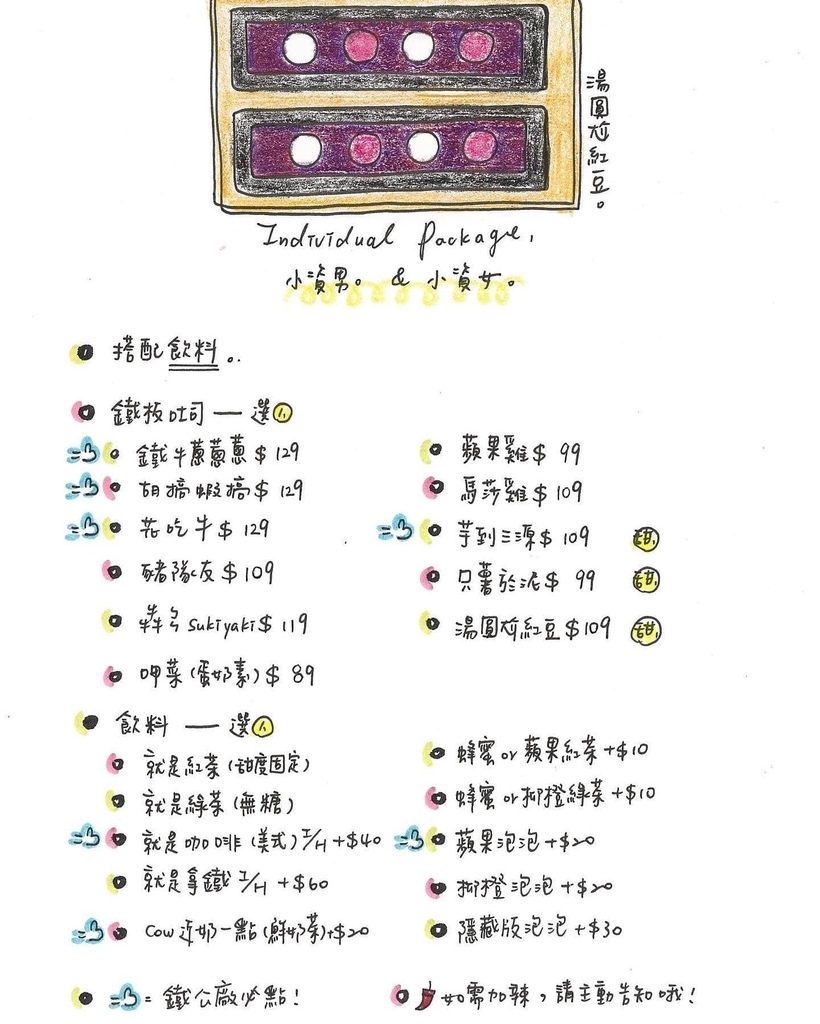 湯圓尬紅豆。
Individual Package,
小資男。 & 小資女。
搭配飲料。
鐵板吐司 — 選1
鐵牛蔥蔥蔥 $ 129
胡搞蝦搞 $ 129
先吃牛 $ 129
豬隊友 $ 109
sukiyaki $ 119
呷菜(蛋奶素) $ 89
蘋果雞 $ 99
馬莎雞 $ 109
芋到三源 $ 109 甜
只薯於泥 $ 99 甜
湯圓尬紅豆 $109 甜
飲料 — 選1
就是紅茶(甜度固定)
就是綠茶(無糖)
就是咖啡(美式) I/H +$40
就是拿鐵 I/H +$60
Cow 近奶一點(鮮奶茶)+$20
蜂蜜 or 蘋果紅茶 +$10
蜂蜜 or 柳橙綠茶 +$10
蘋果泡泡 +$20
柳橙泡泡 +$20
隱藏版泡泡 +$30
= 鐵公廠必點!
如需加辣,請主動告知哦!